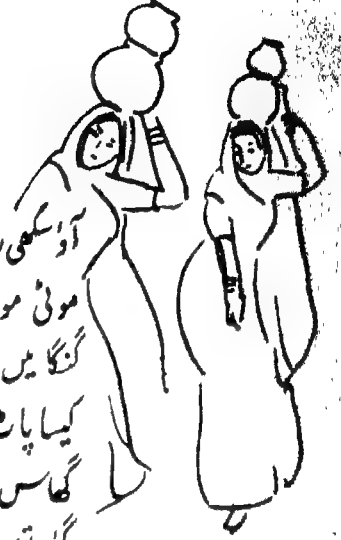 آؤ سکھی
موٹی مو
گنگا میں
کیسا پاٹ
گھاس